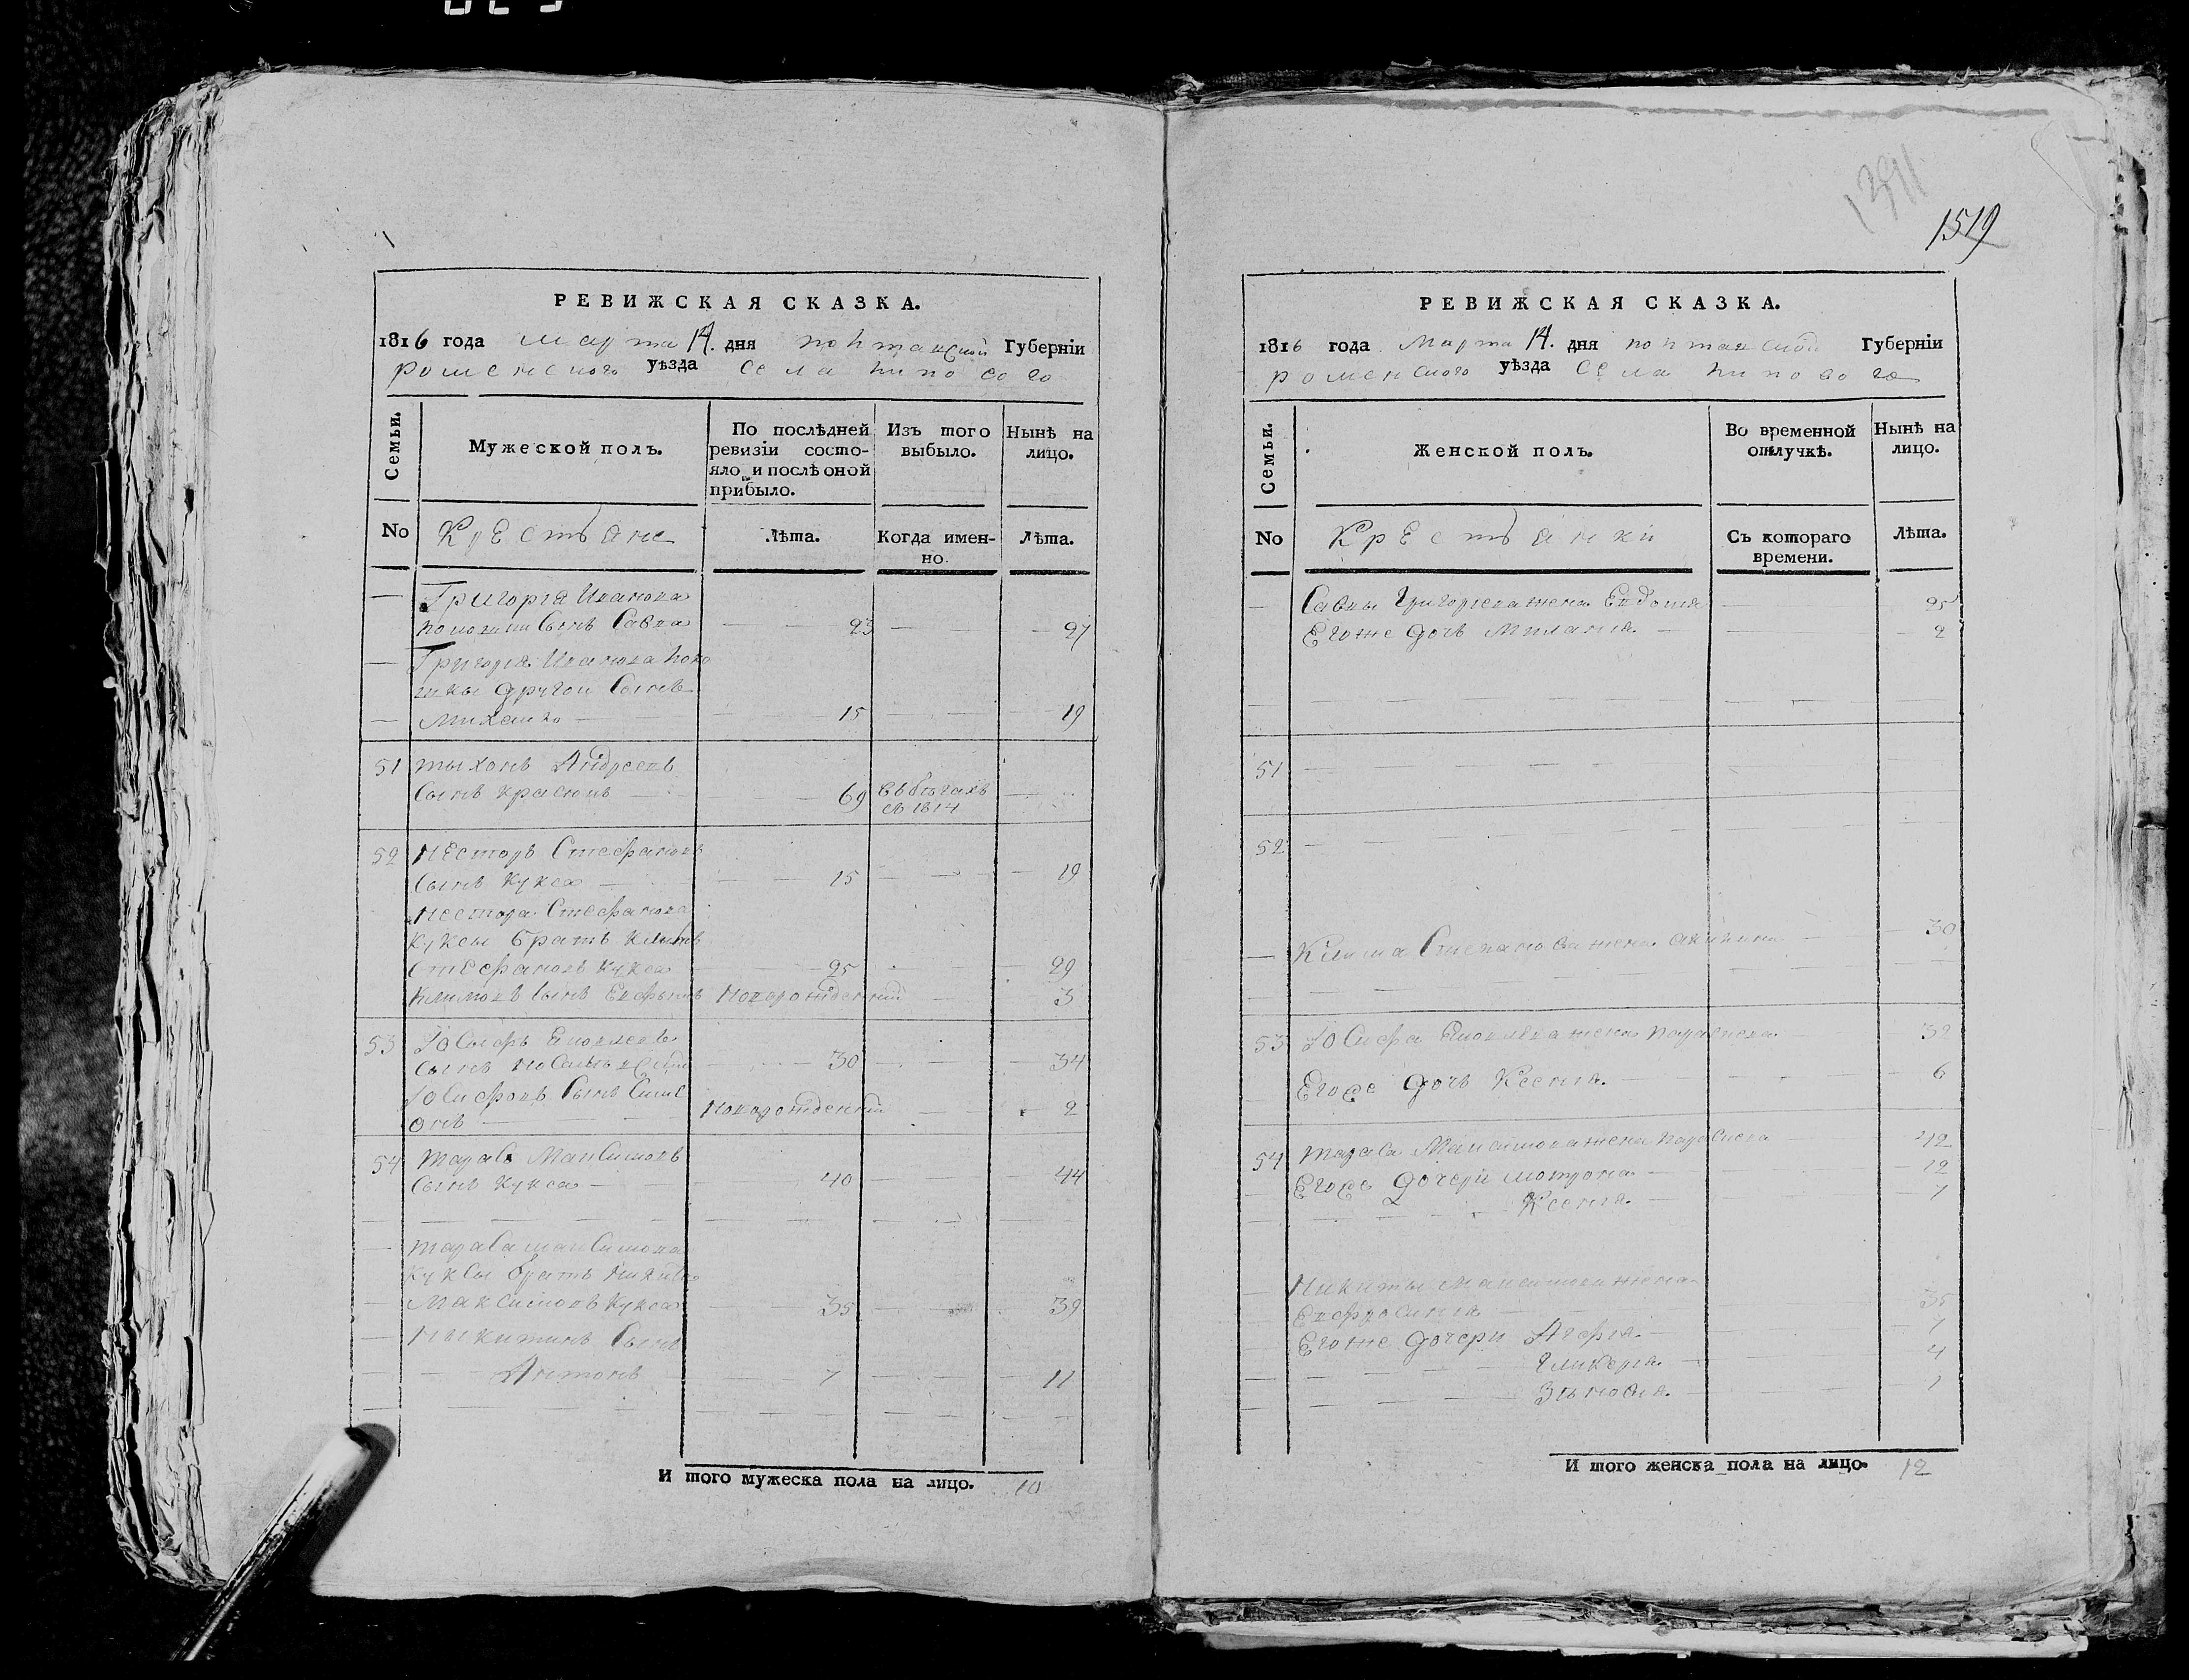 РЕВИЖСКАЯ СКАЗКА.
1816 года марта 14. дня полтавской Губерніи
роменского уѣзда села липового
Семьи.
Мужеской полъ.
По послѣдней ревизіи состо-
яло и послѣ оной прибыло.
Изъ того выбыло.
Нынѣ на лицо.
No
Крестьяне
Лѣта.
Когда имен-
но.
Лѣта.
Григорія Иванова
сынъ Савва 23 27
Григорія Иванова
другои сынъ
Михаило 15 19
51 тыхонъ Андреевъ
сынъ красюкъ 69 в бѣгахъ
съ 1814
52 Несторъ Стефановъ
сынъ Кукса 15 19
Нестора Стефанова
куксы братъ Климъ
Стефановъ кукса 25 29
климовъ сынъ новорожденний 3
53 Іосифъ Яковлевъ
сынъ 30 34
Іосифовъ сынъ Симе
онъ новорожденний 2
54 тарасъ Максимовъ
сынъ кукса 40 44
тараса максимова
куксы братъ никита
Максимовъ кукса 35 39
Ныкитинъ сынъ
Антонъ 7 11
И того мужеска пола на лицо. 10
1391
1519
РЕВИЖСКАЯ СКАЗКА.
1816 года Марта 14. дня полтавской Губерніи
роменского уѣзда села липового
Семьи.
Женской полъ.
Во временной отлучкѣ.
Нынѣ на лицо.
No
Крестьянки
Съ котораго времени.
Лѣта.
Саввы Григориева жена Евдокия 25
Егоже дочь Милания 2
51
52
Клима Стефанова жена акилина 30
53 Іосифа Яковлева жена параскева 32
Егоже дочь Ксенія 6
54 тараса Максимова жена параскева 42
Егоже дочери мотрона 12
Ксенія 7
Никиты Максимова жена
Евфросинія 35
Егоже дочери Агафія 7
Гликерія 4
Зѣновія 1
И того женска пола на лицо. 12